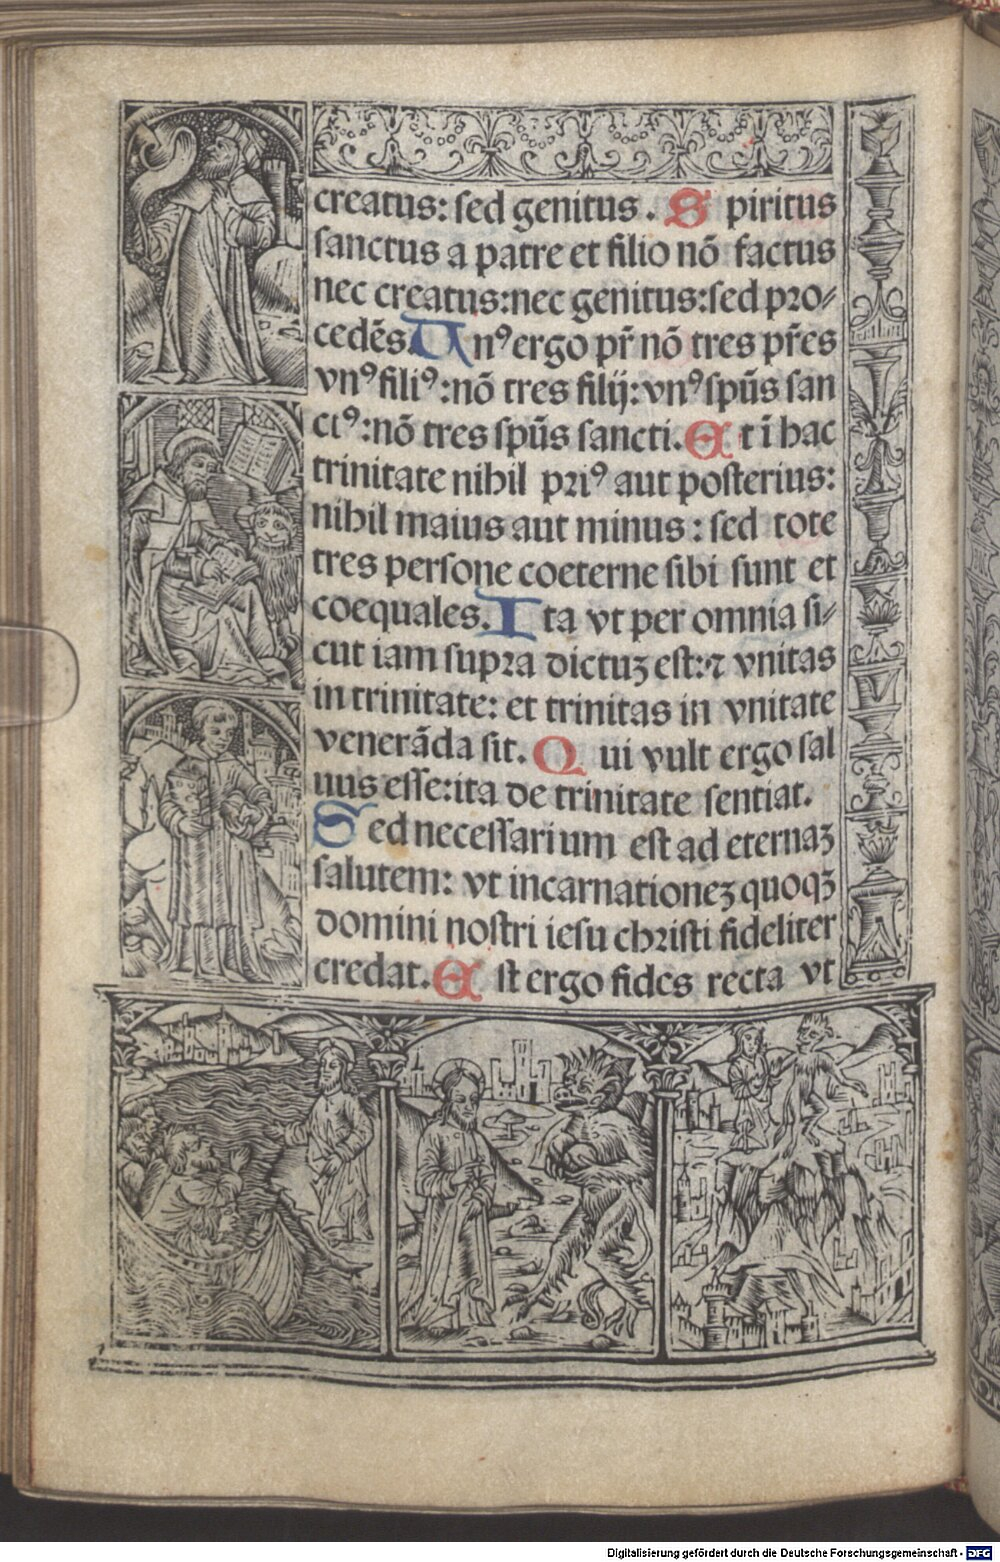 creatus: sed genitus. Spiritus
sanctus a patre et filio nō factus
nec creatus:nec genitus:sed pro⸗
cedēs. Unꝰ ergo pr̄ nō tres pr̄es
vnꝰ filiꝰ:nō tres filij:vnꝰ spūs san
ctꝰ:nō tres spūs sancti. Et ī hac
trinitate nihil priꝰ aut posterius:
nihil maius aut minus: sed tote
tres persone coeterne sibi sunt et
coequales. Ita vt per omnia si⸗
cut iam supra dictuꝫ est:⁊ vnitas
in trinitate: et trinitas in vnitate
venerāda sit. Qui vult ergo sal
uus esse:ita de trinitate sentiat.
Sed necessarium est ad eternaꝫ
salutem: vt incarnationeꝫ quoqꝫ
domini nostri iesu christi fideliter
credat. Est ergo fides recta vt
Digitalisierung gefördert durch die Deutsche Forschungsgemeinschaft - DFG